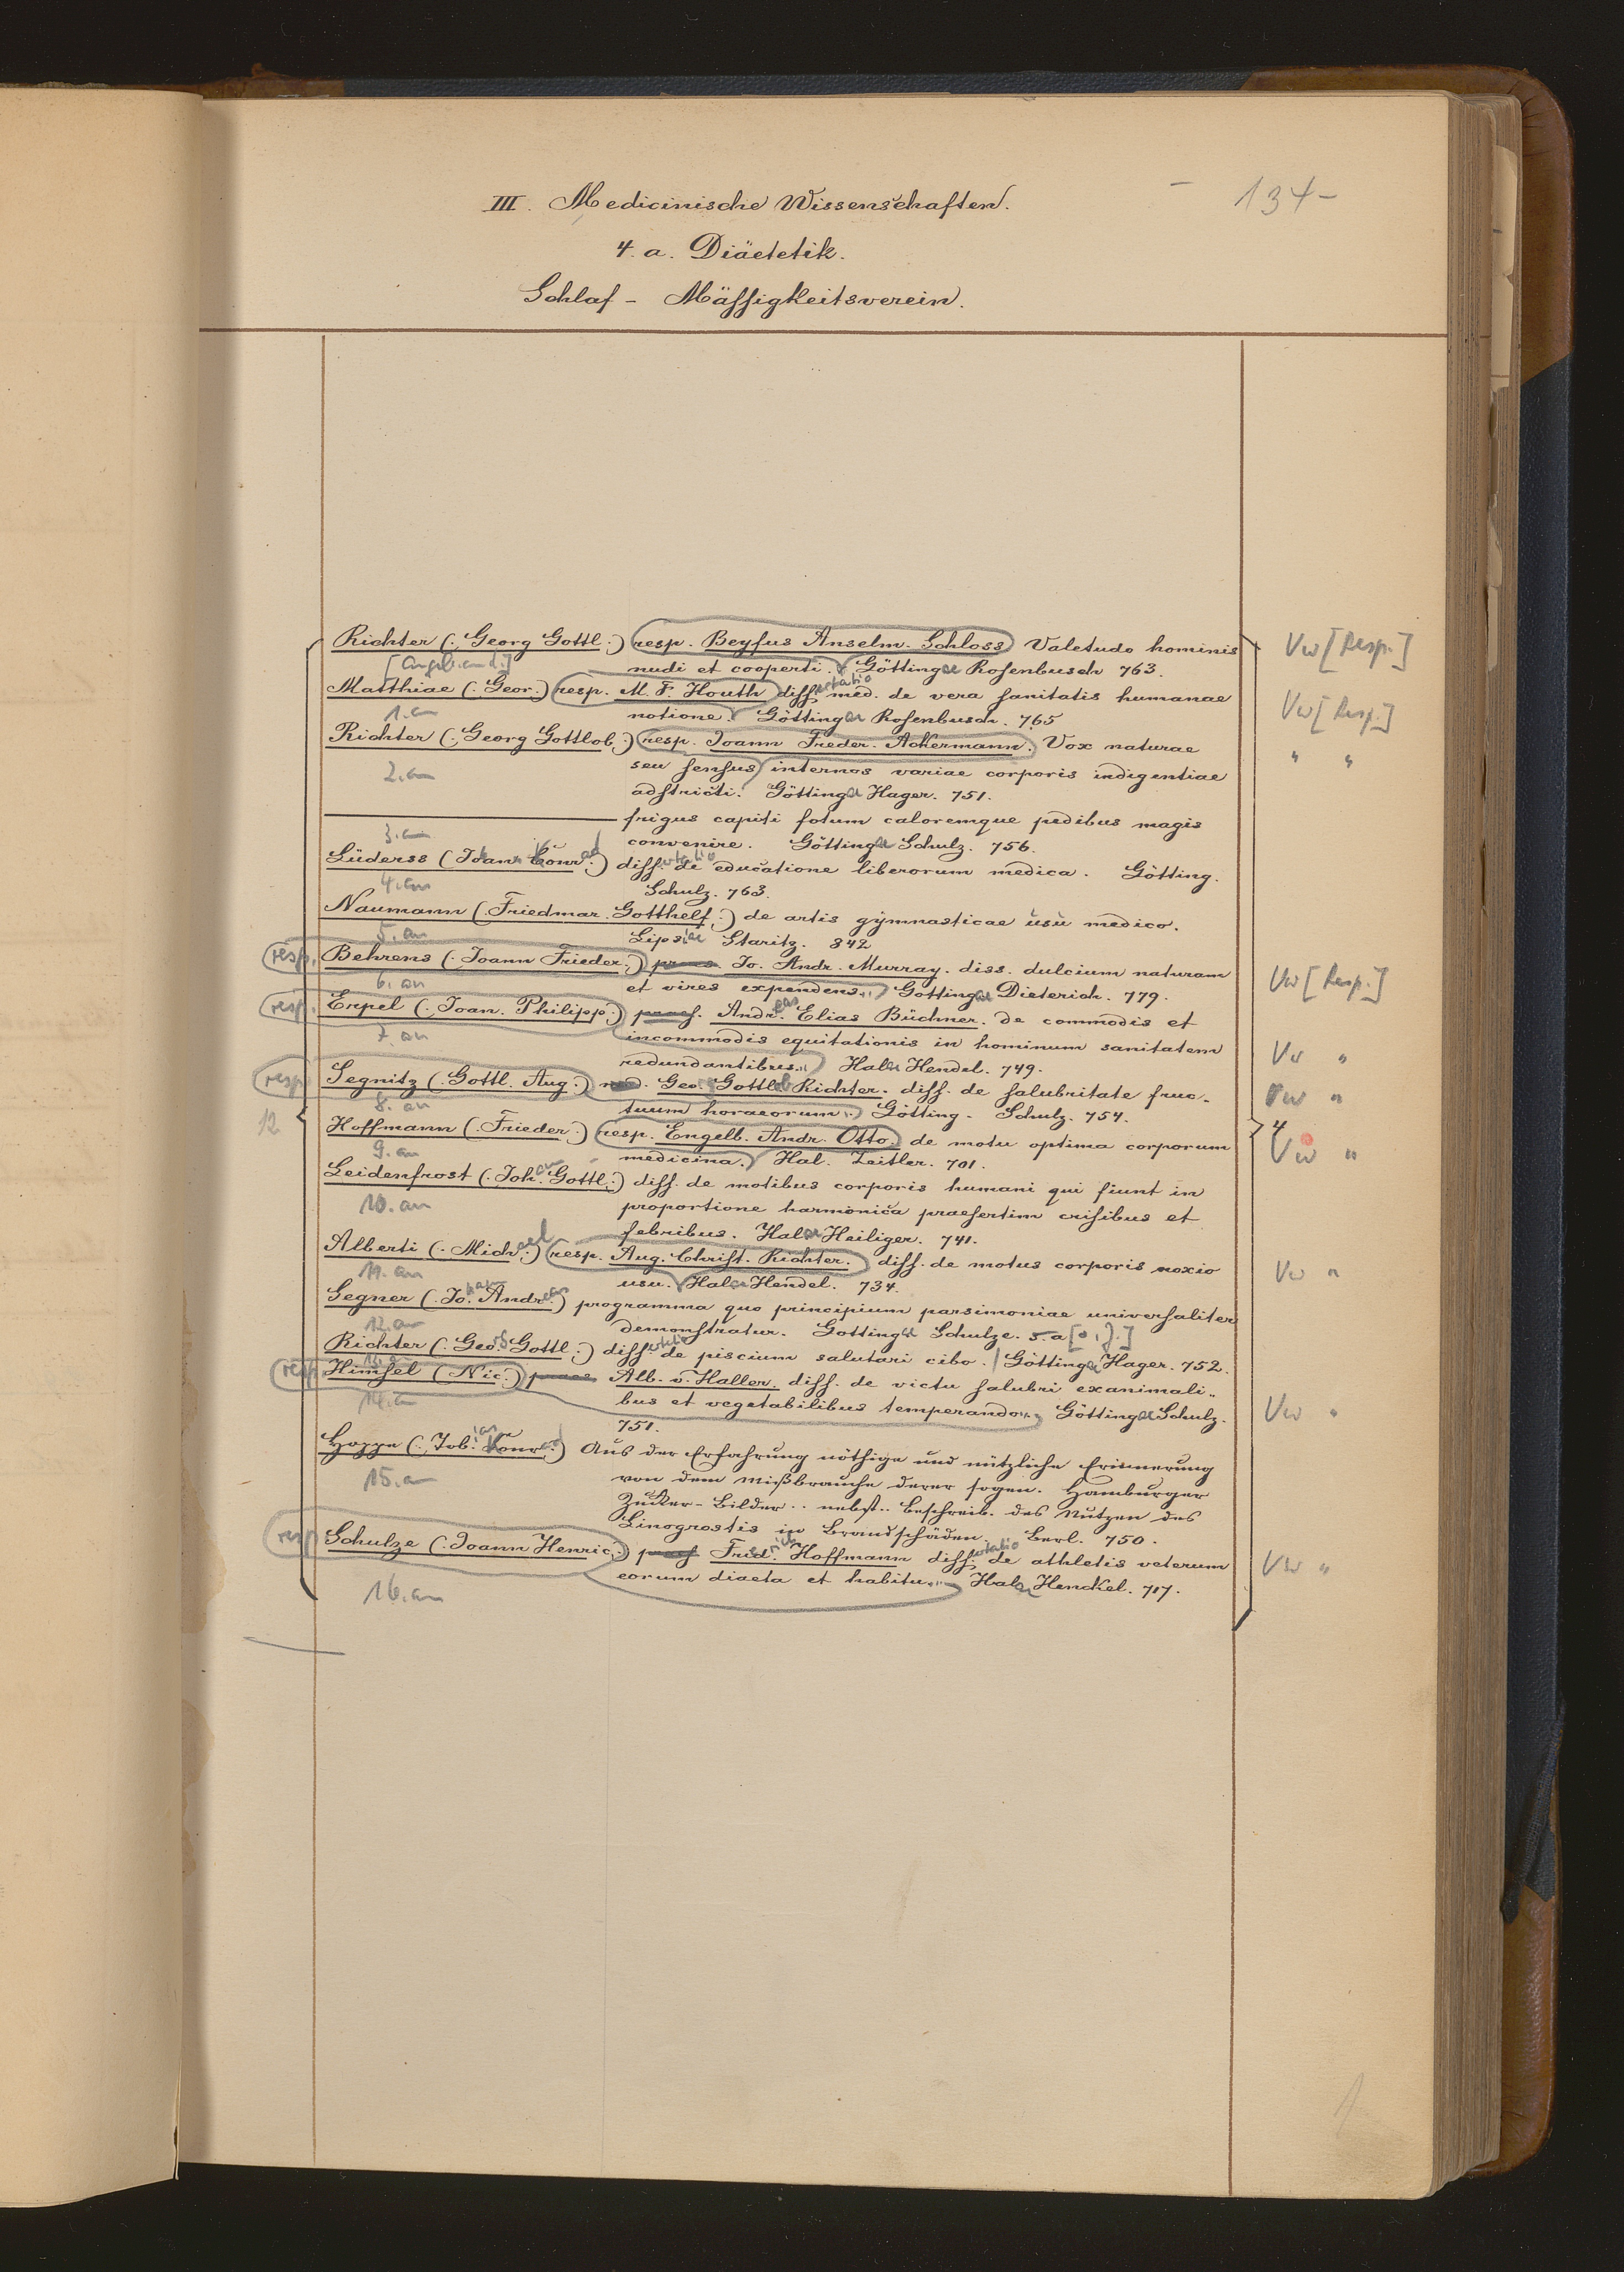 134
III. Medicinische Wissenschaften.
4. a. Diäetetik.
Schlaf - Mässigkeitsverein.
Richter (. Georg Gottl.) resp. Beyfus Anselm. Schloss Valetudo hominis Vw [Resp.]
nudi et cooperti. Göttingae Rosenbusch 763.
Matthiae (. Geor.) resp. M. F. Houth dissertatio med. de vera sanitatis humanae Vw [Resp.]
1. an
notione. Göttingae Rosenbusch. 765
Richter (. Georg Gottlob.) resp. Joann Freder. Ackermann. Vox naturae " "
2. an
seu sensus internos variae corporis indigentiae
adstricti. Göttingae Hager. 751.
frigus capiti fotum caloremque pedibus magis
3. an
convenire. Göttingae Schulz. 756.
Lüderss (Joann Konrad.) dissertatio de educatione liberorum medica. Götting.
4. an
Schulz. 763.
Naumann (. Friedmar. Gotthelf.) de artis gymnasticae usu medico.
5. an
Lipsiae Staritz. 842
resp. Behrens (. Joann Frieder.) praes. Jo. Andr. Murray. diss. dulcium naturam Vw [Resp.]
6. an
et vires expendens. Göttingae Dieterich. 779.
resp. Erpel (. Joan. Philipp.) praes. Andreas Elias Büchner. de commodis et
7. an
incommodis equitationis in hominum sanitatem Vw "
redundantibus. Halae Hendel. 749.
resp. Segnitz (. Gottl. Aug.) Geo. Gottlob Richter. diss. de salubritate fruc- Vw "
8. an
tuum horaeorum. Götting. Schulz. 754.
12
Hoffmann (. Frieder.) resp. Engelb. Andr. Otto. de motu optima corporum 4 Vw "
9. an
medicina. Hal. Zeitler. 701.
Leidenfrost (. Johan. Gottl.) diss. de motibus corporis humani qui fiunt in
10. an
proportione harmonica praesertim crisibus et
febribus. Halae Heiliger. 741.
Alberti (. Michael.) resp. Aug. Christ. Richter. diss. de motus corporis noxio Vw "
11. an
usu. Halae Hendel. 734.
Segner (. Johan. Andreas.) programma quo principium parsimoniae universaliter
12. an
demonstratur. Göttingae Schulze. s. a [o. J.]
Richter (. Georg Gottl.) dissertatio de piscium salutari cibo. Göttingae Hager. 752.
13. a
resp. Himsel (Nic.) praes Alb. v. Haller. diss. de victu salubri exanimali-
14. an
bus et vegetabilibus temperando. Göttingae Schulz. Vw "
751.
Hoppe (. Tobias Konrad.) Aus der Erfahrung nöthige und nützliche Erinnerung
15. a
von dem Mißbrauche derer sogen. Hamburger
Zucker-Bilder .. nebst.. Beschreib. des Nutzen des
Linogrostis in Brandschäden. Berl. 750.
resp. Schulze (. Joann Henric.) praes Friedrich Hoffmann dissertatio de athletis veterum Vw "
16. an
eorum diaeta et habitu. Halae Henckel. 717.
1